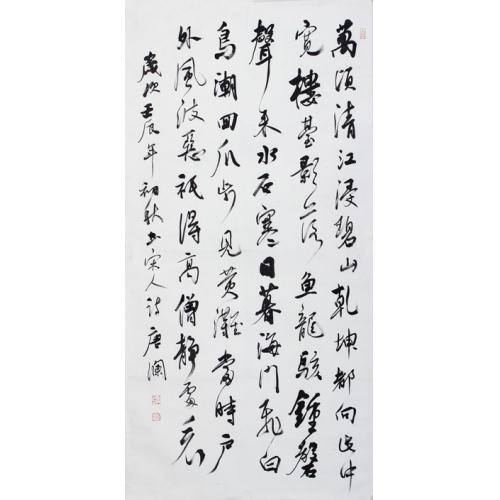 萬頃清江浸碧山乾坤都向此中
寬樓臺影落魚龍駭鐘磬
聲来水石寒日暮海門飛白
鳥潮回瓜步見黄灘當時户
外風波惡祇得高僧静處看
歲次壬辰年初秋书宋人诗唐澜